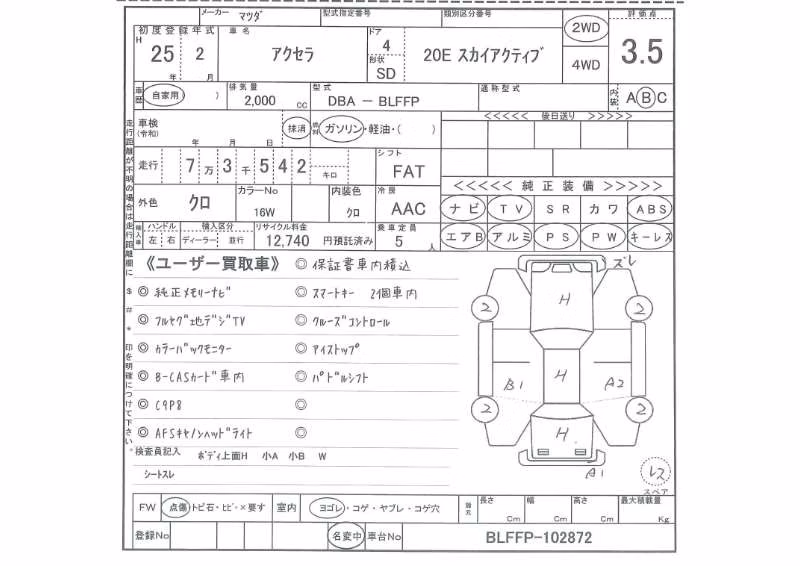 メーカー マツダ 型式指定番号 類別区分番号 評価点
初度登録年式 車名 ドア 2WD
H 25 2 アクセラ 4 20E スカイアクティブ 3.5
年 月 形状 SD 4WD
車歴 自家用 ) 排気量 2,000 cc 型式 DBA - BLFFP 通称型式 内装 A B C
車検 (令和) 年 月 日 抹済 燃料 ガソリン・軽油・( ) <<<<< 後日送り >>>>>
走行 7万3千542 キロ シフト FAT
<<<<< 純正装備 >>>>>
外色 クロ カラーNo 16W 内装色 クロ 冷房 AAC ナビ TV SR カワ ABS
輸入車 ハンドル 左 右 輸入区分 ディーラー 並行 リサイクル料金 12,740 円預託済み 乗車定員 5 人 エアB アルミ PS PW キーレス
走行距離が不明の場合は走行距離欄に$#*印を明確につけて下さい。
《ユーザー買取車》 ◎ 保証書車内積込
◎ 純正メモリーナビ ◎ スマートキー 2個車内
◎ フルセグ地デジTV ◎ クルーズコントロール
◎ カラーバックモニター ◎ アイストップ
◎ B-CASカード車内 ◎ パドルシフト
◎ C9P8 ◎
◎ AFSキセノンヘッドライト ◎
検査員記入 ボディ上面H 小A 小B W
シートスレ
ズレ
H
2 2
H
B1 A2
2 2
H
A1
レス
スペア
FW 点傷・トビ石・ヒビ・×要す 室内 ヨゴレ・コゲ・ヤブレ・コゲ穴 長さ Cm 幅 Cm 高さ Cm 最大積載量 Kg
登録No 名変中 車台No BLFFP-102872